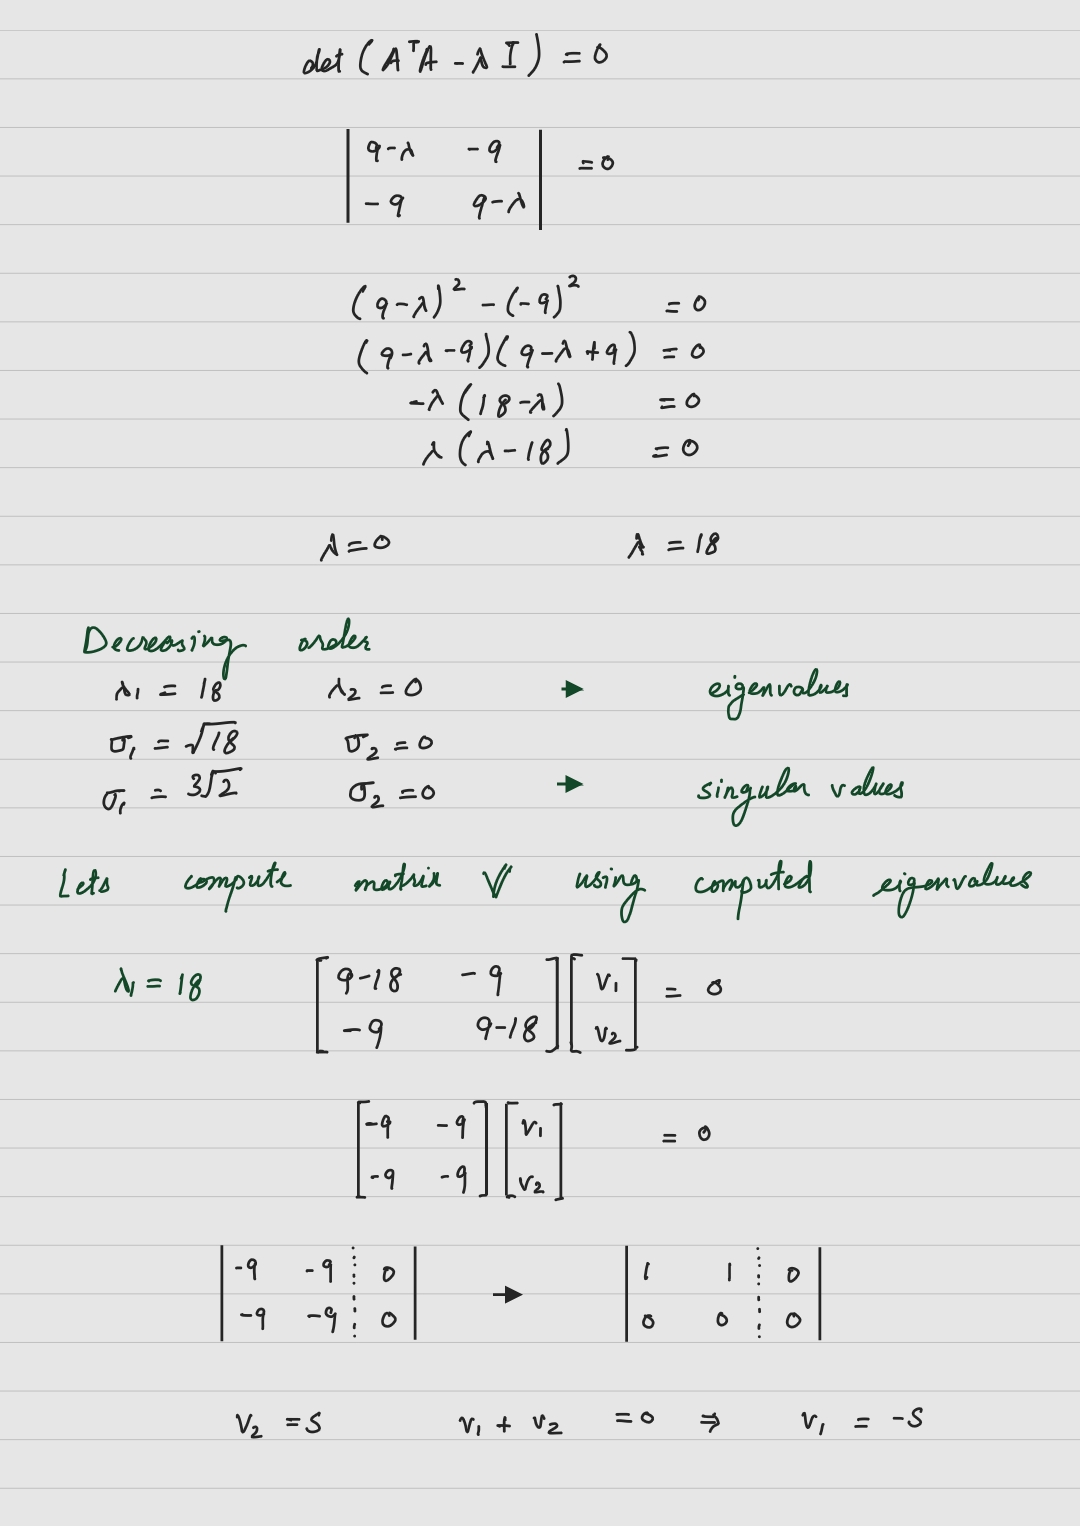 det (AᵀA - λ I) = 0
| 9-λ -9 | = 0
| -9 9-λ |
(9-λ)² - (-9)² = 0
(9-λ-9)(9-λ+9) = 0
-λ (18-λ) = 0
λ (λ-18) = 0
λ = 0 λ = 18
Decreasing order
λ₁ = 18 λ₂ = 0 → eigenvalues
σ₁ = √18 σ₂ = 0
σ₁ = 3√2 σ₂ = 0 → singular values
Lets compute matrix V using computed eigenvalues
λ₁ = 18 [ 9-18 -9 ] [ v₁ ] = 0
[ -9 9-18 ] [ v₂ ]
[ -9 -9 ] [ v₁ ] = 0
[ -9 -9 ] [ v₂ ]
| -9 -9 ⋮ 0 | → | 1 1 ⋮ 0 |
| -9 -9 ⋮ 0 | | 0 0 ⋮ 0 |
V₂ = S v₁ + v₂ = 0 ⇒ v₁ = -S